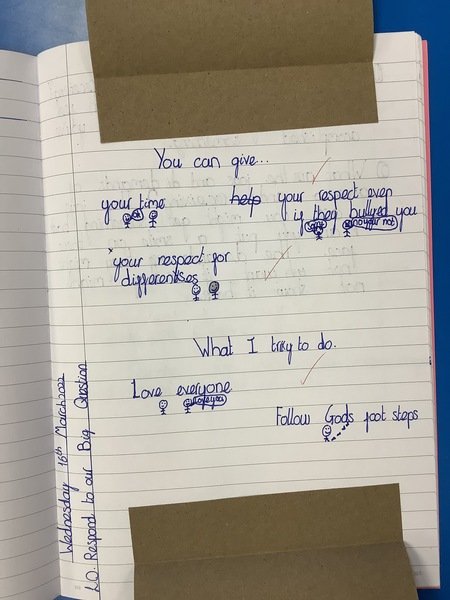 Wednesday 16th March 2022
L.O. Respond to our Big Question
You can give...
your time
help your respect even
if they bullyed you
no your not
your respect for
differentses
What I triy to do.
Love everyone
I love you
Follow Gods foot steps